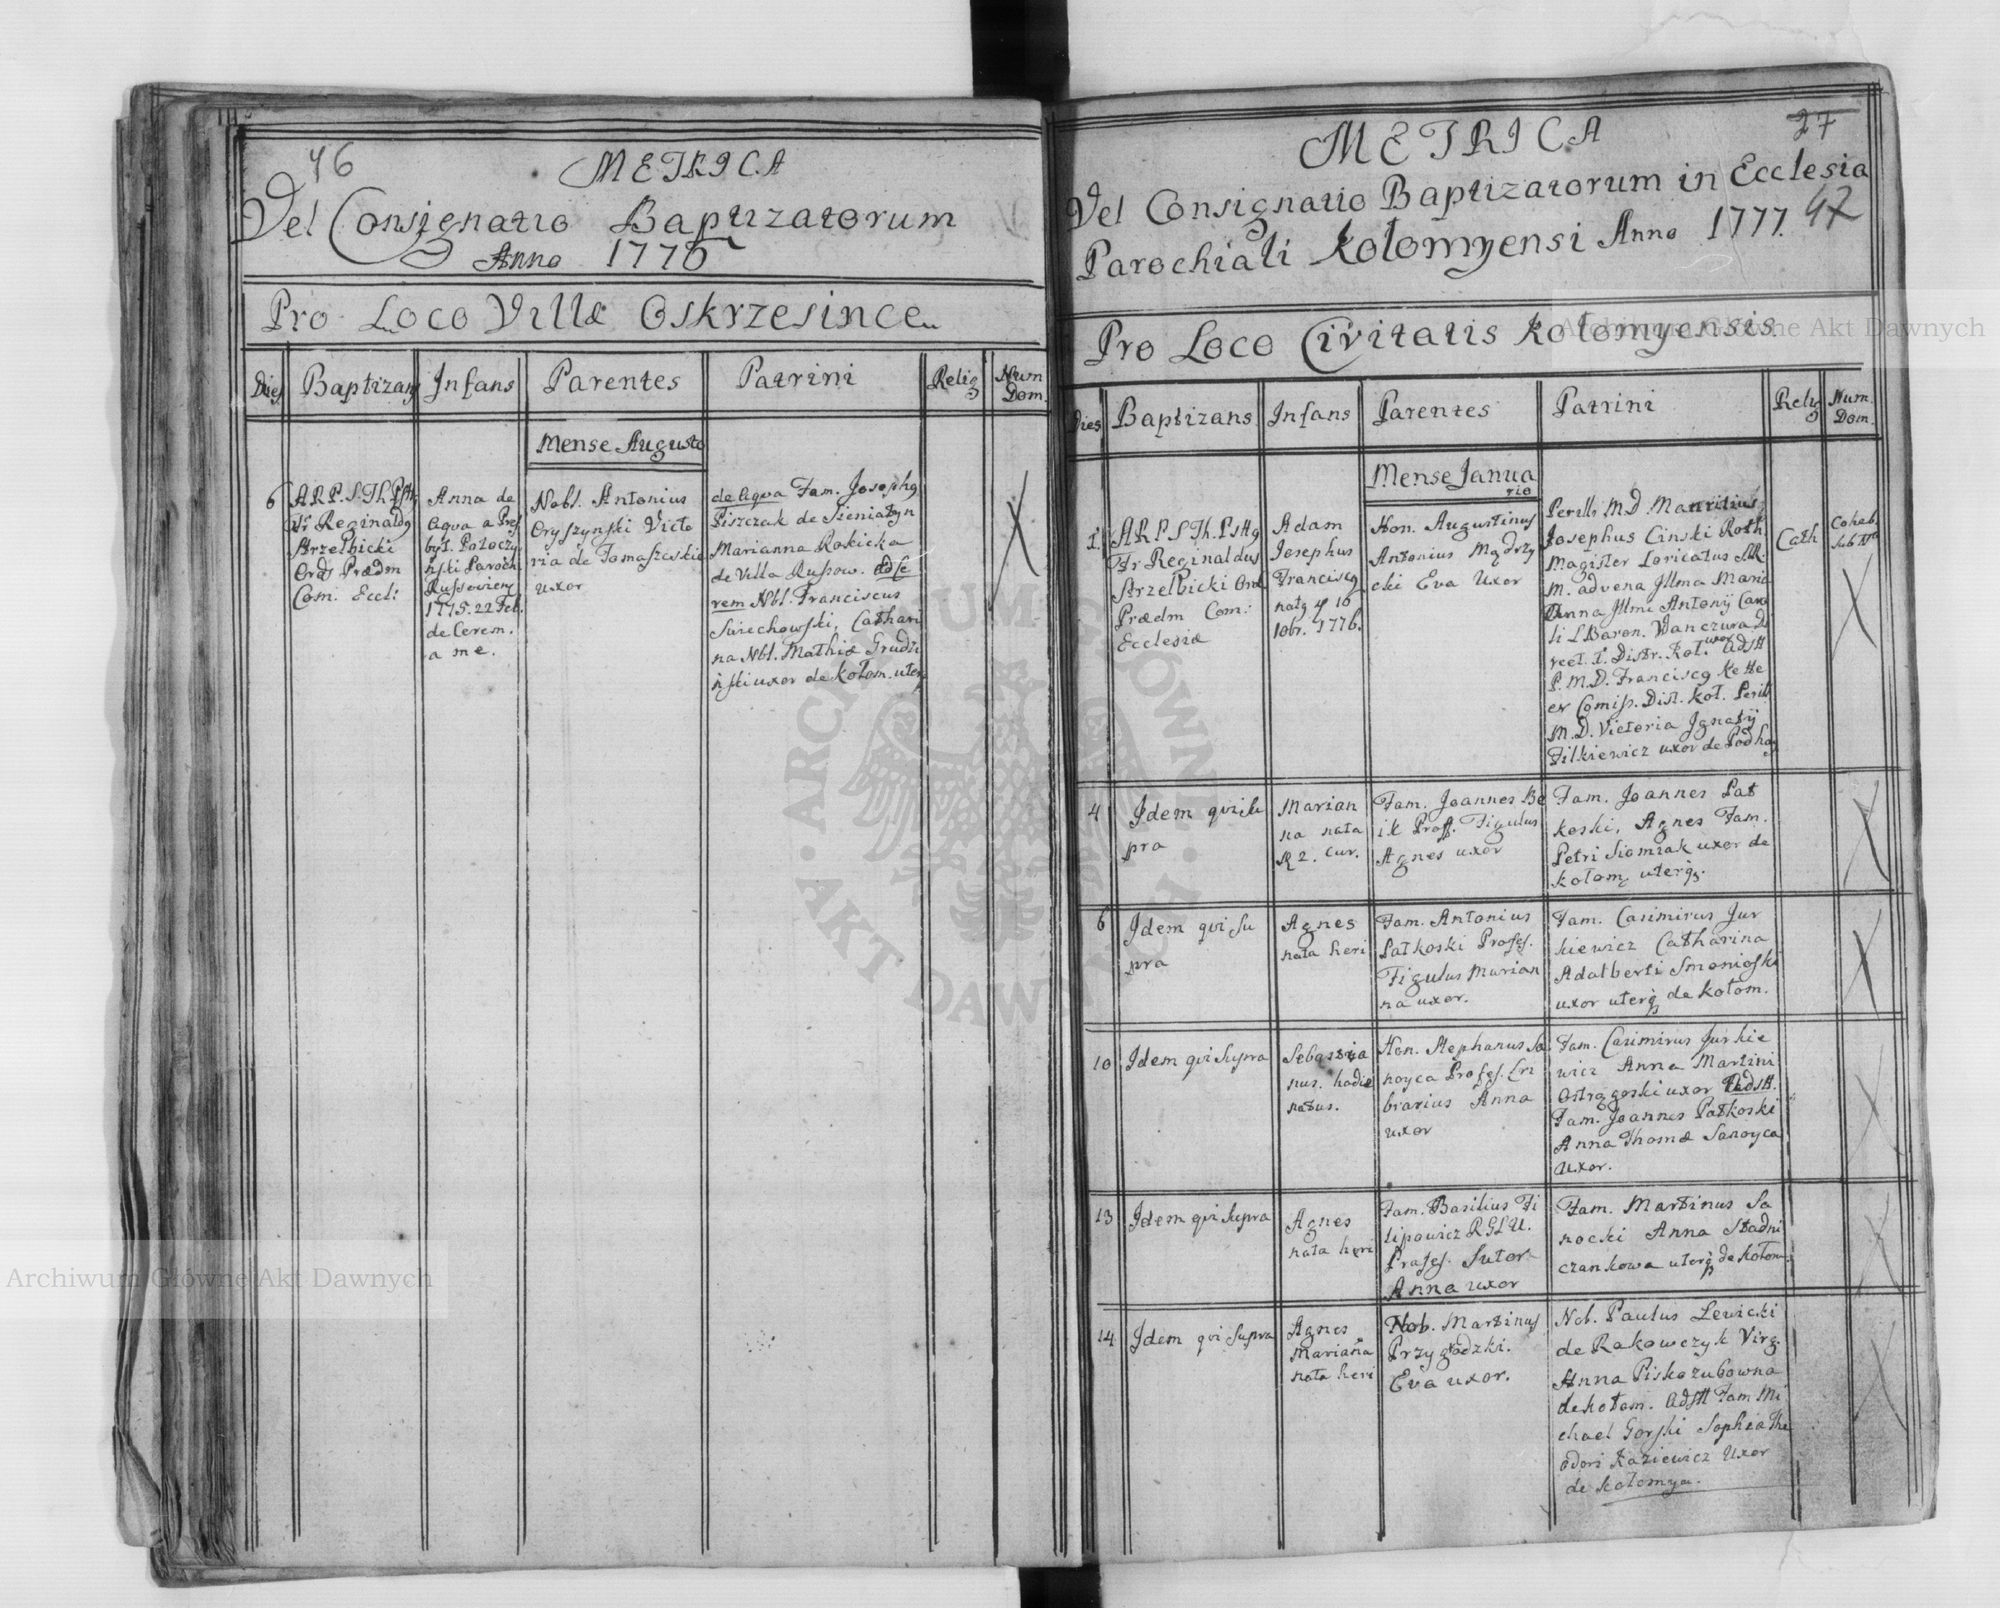 46
METRICA
Vel Consignatio Baptizatorum
Anno 1776
Pro Loco Villæ Oskrzesince
Dies Baptizans Infans Parentes Patrini Relig Num Dom.
Mense Augusto
6
A.R.P.S.Th.
Fr Reginaldg
Strzelbicki
Ord Prædm
Com. Eccl:
Anna de
aqva a Pres
byt. Potoczy
nski Paroch
1775. 22 Feb.
de Cerem.
a me.
Nobl. Antonius
Oryszynski Victo
ria de Tomaszeskie
uxor
de aqva Fam. Josephg
Piszczak de Sieniatyn
Marianna Rokicka
de Villa Russow. ad Ce
rem Nbl. Franciscus
Swiechowski, Cathari
na Nbl. Mathiæ Grudzi
nski uxor de Kołom. uterq
27
47
METRICA
Vel Consignatio Baptizatorum in Ecclesia
Parochiali Kołomyensi Anno 1777.
Pro Loco Civitatis Kołomyensis
Dies Baptizans Infans Parentes Patrini Relig Num. Dom.
Mense Janua
rio
1.
A R P S Th.
Fr Reginaldus
Strzelbicki Ord
Prædm Com:
Ecclesiæ
Adam
Josephus
Franciscg
natg
10br. 1776.
Hon. Augustinus
Antonius Mądrzy
cki Eva Uxor
Perill. M D Mauritius
Josephus Cinski Roth
Magister Loricatus
M. advena Illma Maria
Anna Illmi Antonij Caro
li L Baron. Wanczura
rect. Distr. Koł. uxor Adstt
P. M. D. Franciscg Kette
er Comiss. Dist. Koł. Perill
M. D. Victoria Ignatij
Filkiewicz uxor de Podhay
Cath
Cohab.
sub
4
Idem qvi su
pra
Marian
na nata
R 2. Cur.
Fam. Joannes Be
ik Prof. Figulus
Agnes uxor
Fam. Joannes Pat
koski, Agnes Fam.
Petri Siomiak uxor de
Kołom. uterq.
6
Idem qvi su
pra
Agnes
nata heri
Fam. Antonius
Patkoski Profes.
Figulus Marian
na uxor.
Fam. Casimirus Jur
kiewicz Catharina
Adalberti Smonioski
uxor uterq de Kołom.
10
Idem qvi supra
Sebastia
nus. hodie
natus.
Hon. Stephanus Sa
noyca Profes. Cri
brarius Anna
uxor
Fam. Casimirus Jurkie
wicz Anna Martini
Ostrogoski uxor Adstt.
Fam. Joannes Patkoski
Anna Thomæ Sanoyca
uxor.
13
Idem qvi supra
Agnes
nata heri
Fam. Basilius Fi
lipowicz RGLU.
Profes. Sutor
Anna uxor
Fam. Martinus Sa
nocki Anna Stadni
czankowa uterq de Kołom.
14
Idem qvi supra
Agnes
Mariana
nata heri
Nob. Martinus
Przygodzki.
Eva uxor.
Nob. Paulus Lewicki
de Rakowczyk Virg.
Anna Piskozubowna
de Kołom. Adstt Fam Mi
chael Gorski Sophia The
odori Kaziewicz Uxor
de Kołomya.
Archiwum Główne Akt Dawnych
Archiwum Główne Akt Dawnych
ARCHIWUM GŁÓWNE AKT DAWNYCH